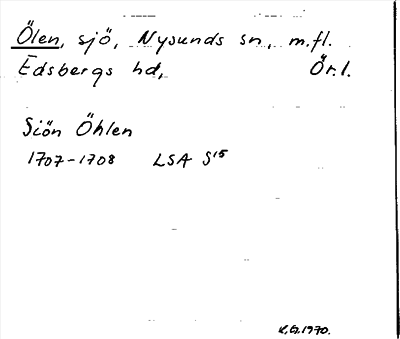 Ölen, sjö, Nysunds sn, m.fl.
Edsbergs hd, Ör.l.
Siön Öhlen
1707-1708 LSA S15
K.G.1970.